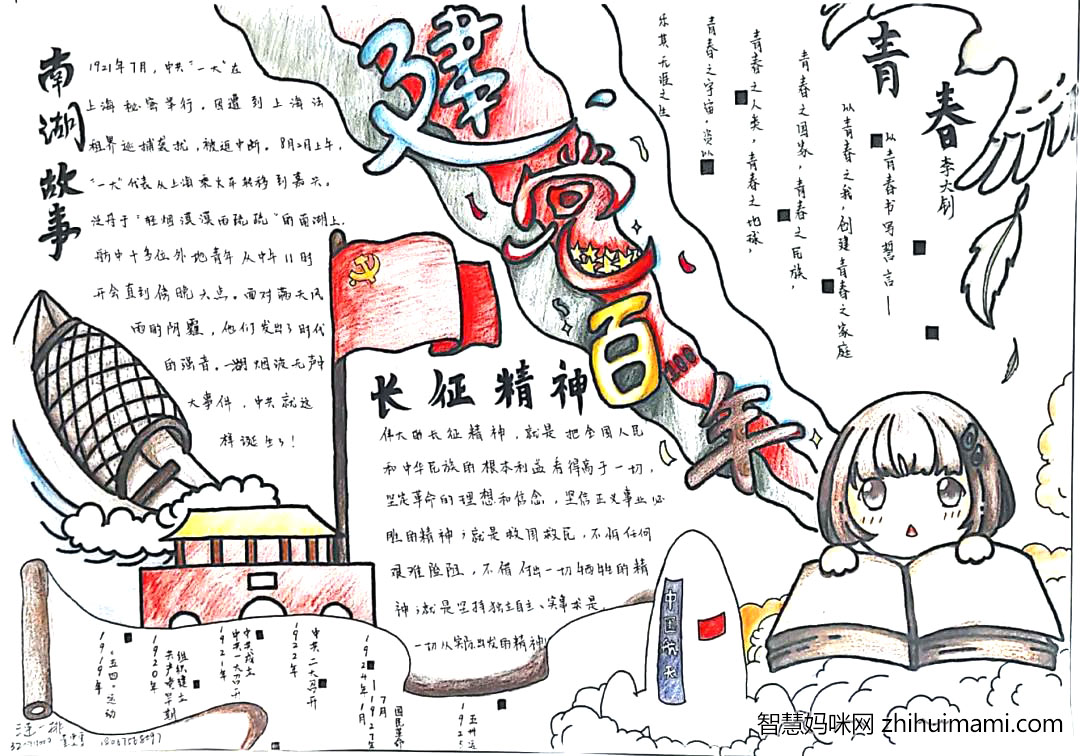 南湖故事
1921年7月，中共"一大"在
上海秘密举行，因遭到上海法
租界巡捕袭扰，被迫中断。8月2日上午，
"一大"代表从上海乘火车转移到嘉兴。
泛舟于"轻烟漠漠雨疏疏"的南湖上，
船中十多位外地青年从中午11时
开会直到傍晚六点。面对雨天风
雨的阴霾，他们发出了时代
的强音。一湖烟波无声
大事件，中共就这
样诞生了！
建党百年
100
长征精神
伟大的长征精神，就是把全国人民
和中华民族的根本利益看得高于一切，
坚定革命的理想和信念，坚信正义事业必
胜的精神；就是救国救民，不怕任何
艰难险阻，不惜付出一切牺牲的精
神；就是坚持独立自主、实事求是，
一切从实际出发的精神
青春
李大钊
以青春书写誓言——
以青春之我，创建青春之家庭
青春之国家，青春之民族，
青春之人类，青春之地球，
青春之宇宙，资以
乐其无涯之生
中国航天
1919年
"五四"运动
1920年
组织建立
共产党早期
1921年
中共一大召开
中共成立
1922年
中共二大召开
1924年1月
—1927年
7月
国民革命
五卅运
智慧妈咪网 zhihuimami.com